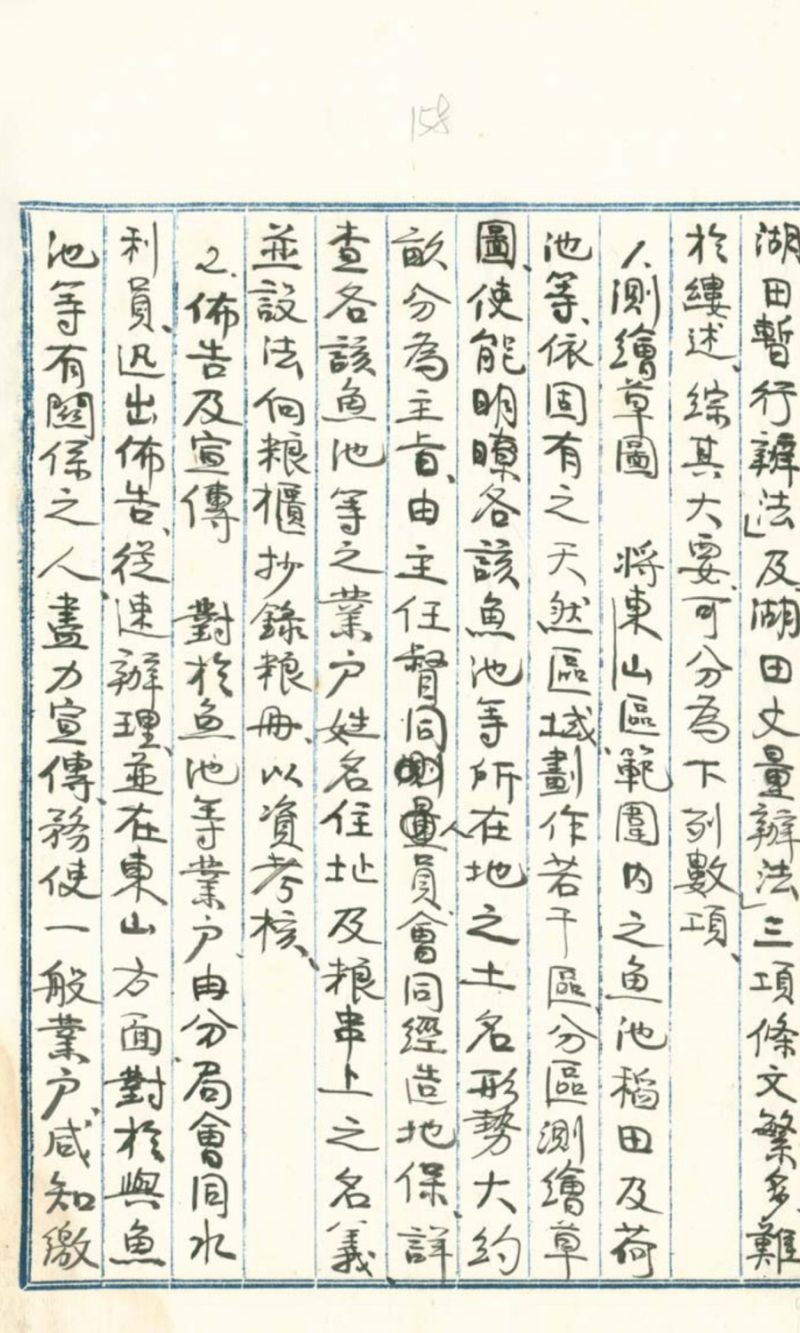 158
湖田暫行辦法」及湖田丈量辦法」三項條文繁多、難
於縷述、綜其大要、可分為下列數項、
1. 測繪草圖　將東山區範圍內之魚池稻田及荷
池等、依固有之天然區域、劃作若干區、分區測繪草
圖、使能明瞭各該魚池等所在地之土名形勢大約
畝分為主旨、由主任督同測量人員、會同經造地保、詳
查各該魚池等之業户姓名住址及粮串上之名義、
並設法向粮櫃抄錄粮册、以資考核、
2. 佈告及宣傳　對於魚池等業户、由分局會同水
利員、迅出佈告、從速辦理、並在東山方面、對於與魚
池等有關係之人、盡力宣傳、務使一般業户、咸知繳